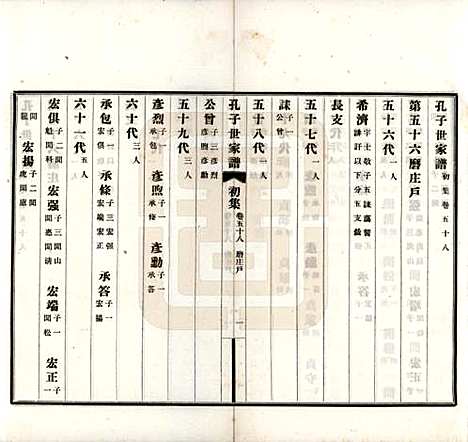 孔子世家譜 初集卷五十八
第五十六磨庄戶
五十六代 一人
希濟 字士敬子五誄藹謦諱訐以下分五支敘
長支
五十七代 一人
誄 子一公曾
五十八代 一人
孔子世家譜 初集 卷五十八 磨庄戶 一
公曾 子三彥烈彥煦彥勳
五十九代 三人
彥烈 子一承包 彥煦 子一承條 彥勳 子一承答
六十代 三人
承包 子一宏俱 承條 子三宏强宏端宏正 承答 子一宏揚
六十一代 五人
宏俱 子二聞魁聞科 宏强 子三聞山聞悳聞清 宏端 子一聞松 宏正 子一
聞龍 宏揚 子二聞虎聞廬